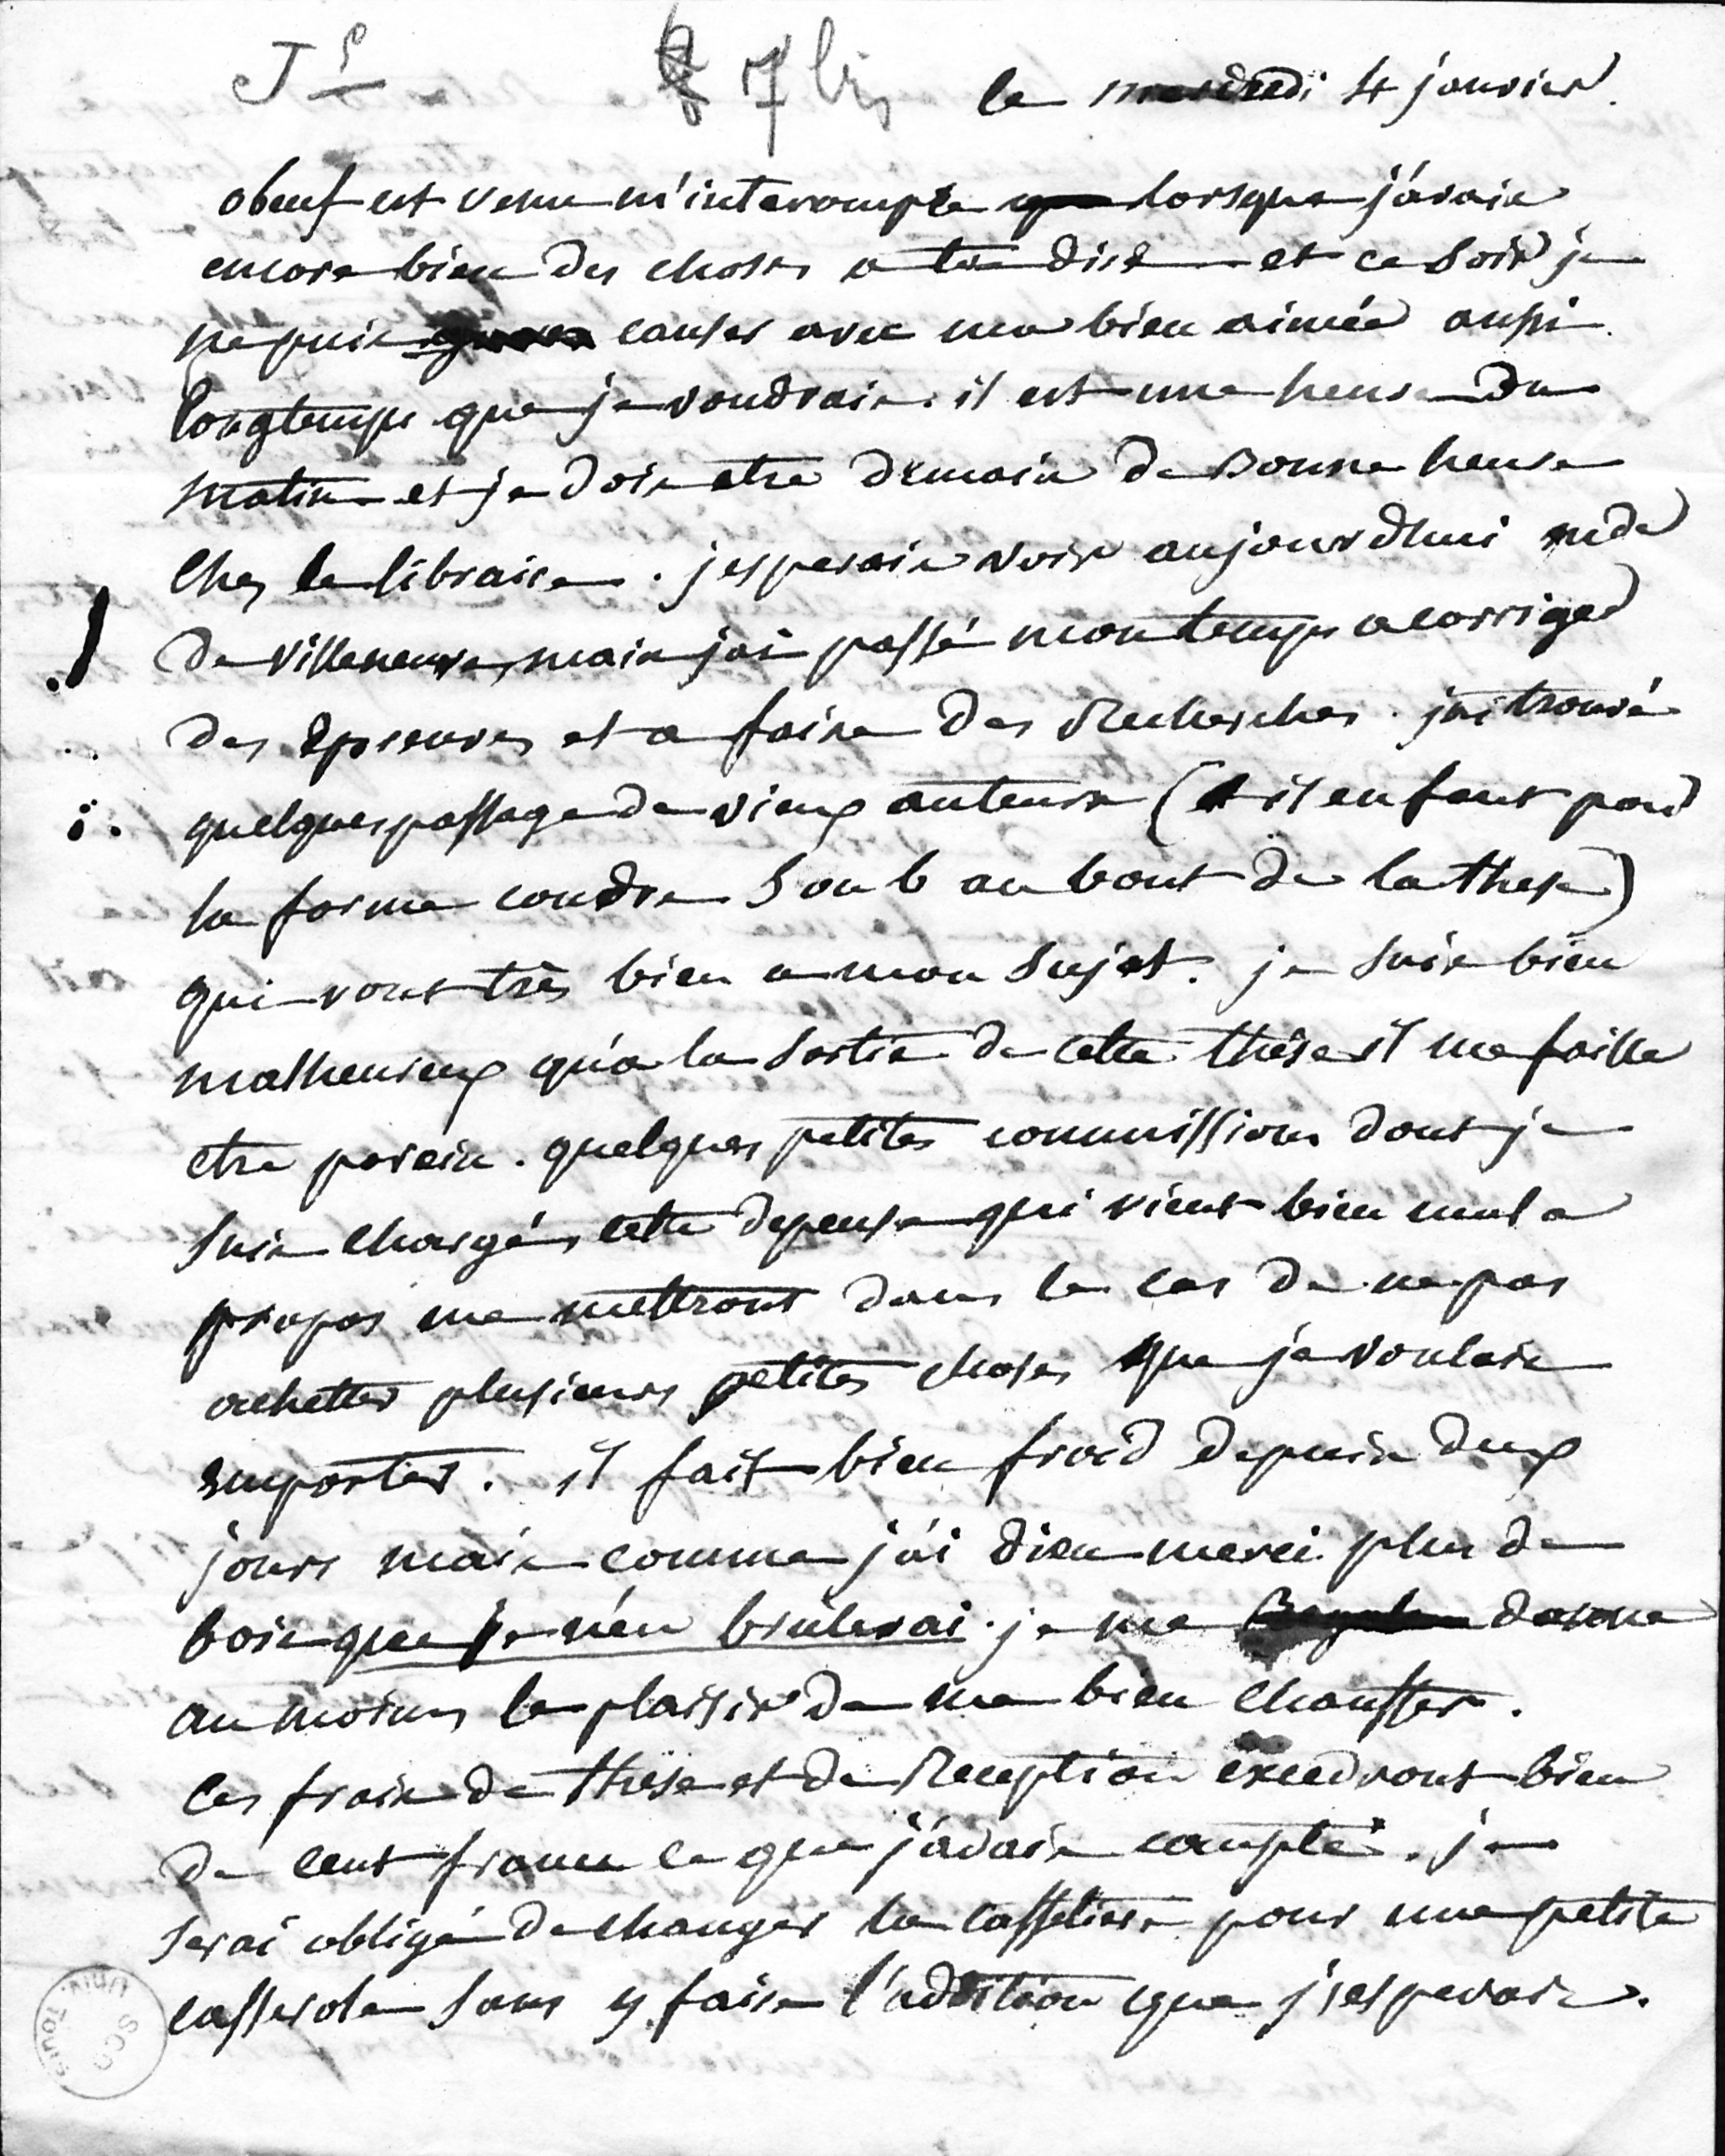 J^e 7 bis le mercredi 4 janvier.
obeuf est venu m'interompre lorsque j'avais
encore bien des choses a te dire et ce soir je
ne puis causer avec ma bien aimée aussi
longtemps que je voudrais. il est une heure du
matin et je dois etre demain de bonne heure
chez le libraire. j'esperais voir aujourd'hui mde
de villeneuve, mais j'ai passé mon temps a corriger
des epreuves et a faire des Recherches. j'ai trouvé
quelques passage de vieux auteurs (il en faut pour
la forme coudre 5 ou 6 au bout de la these)
qui vont très bien a mon sujet. je suis bien
malheureux qu'a la sortie de cette thèse il me faille
etre parain. quelques petites commissions dont je
suis chargé, cette depense qui vient bien mal a
propos me mettront dans le cas de ne pas
achetter plusieurs petites choses que je voulais
emporter. il fait bien froid depuis deux
jours mais comme j'ai dieu merci plus de
bois que je n'en brulerai. je me donne
au moins le plaisir de me bien chauffer.
Ces frais de thèse et de Reception excedront bien
de cent francs ce que j'avais compté. je
serai obligé de changer la caffetiere pour une petite
casserole sans y faire l'addition que j'esperais.
SCD